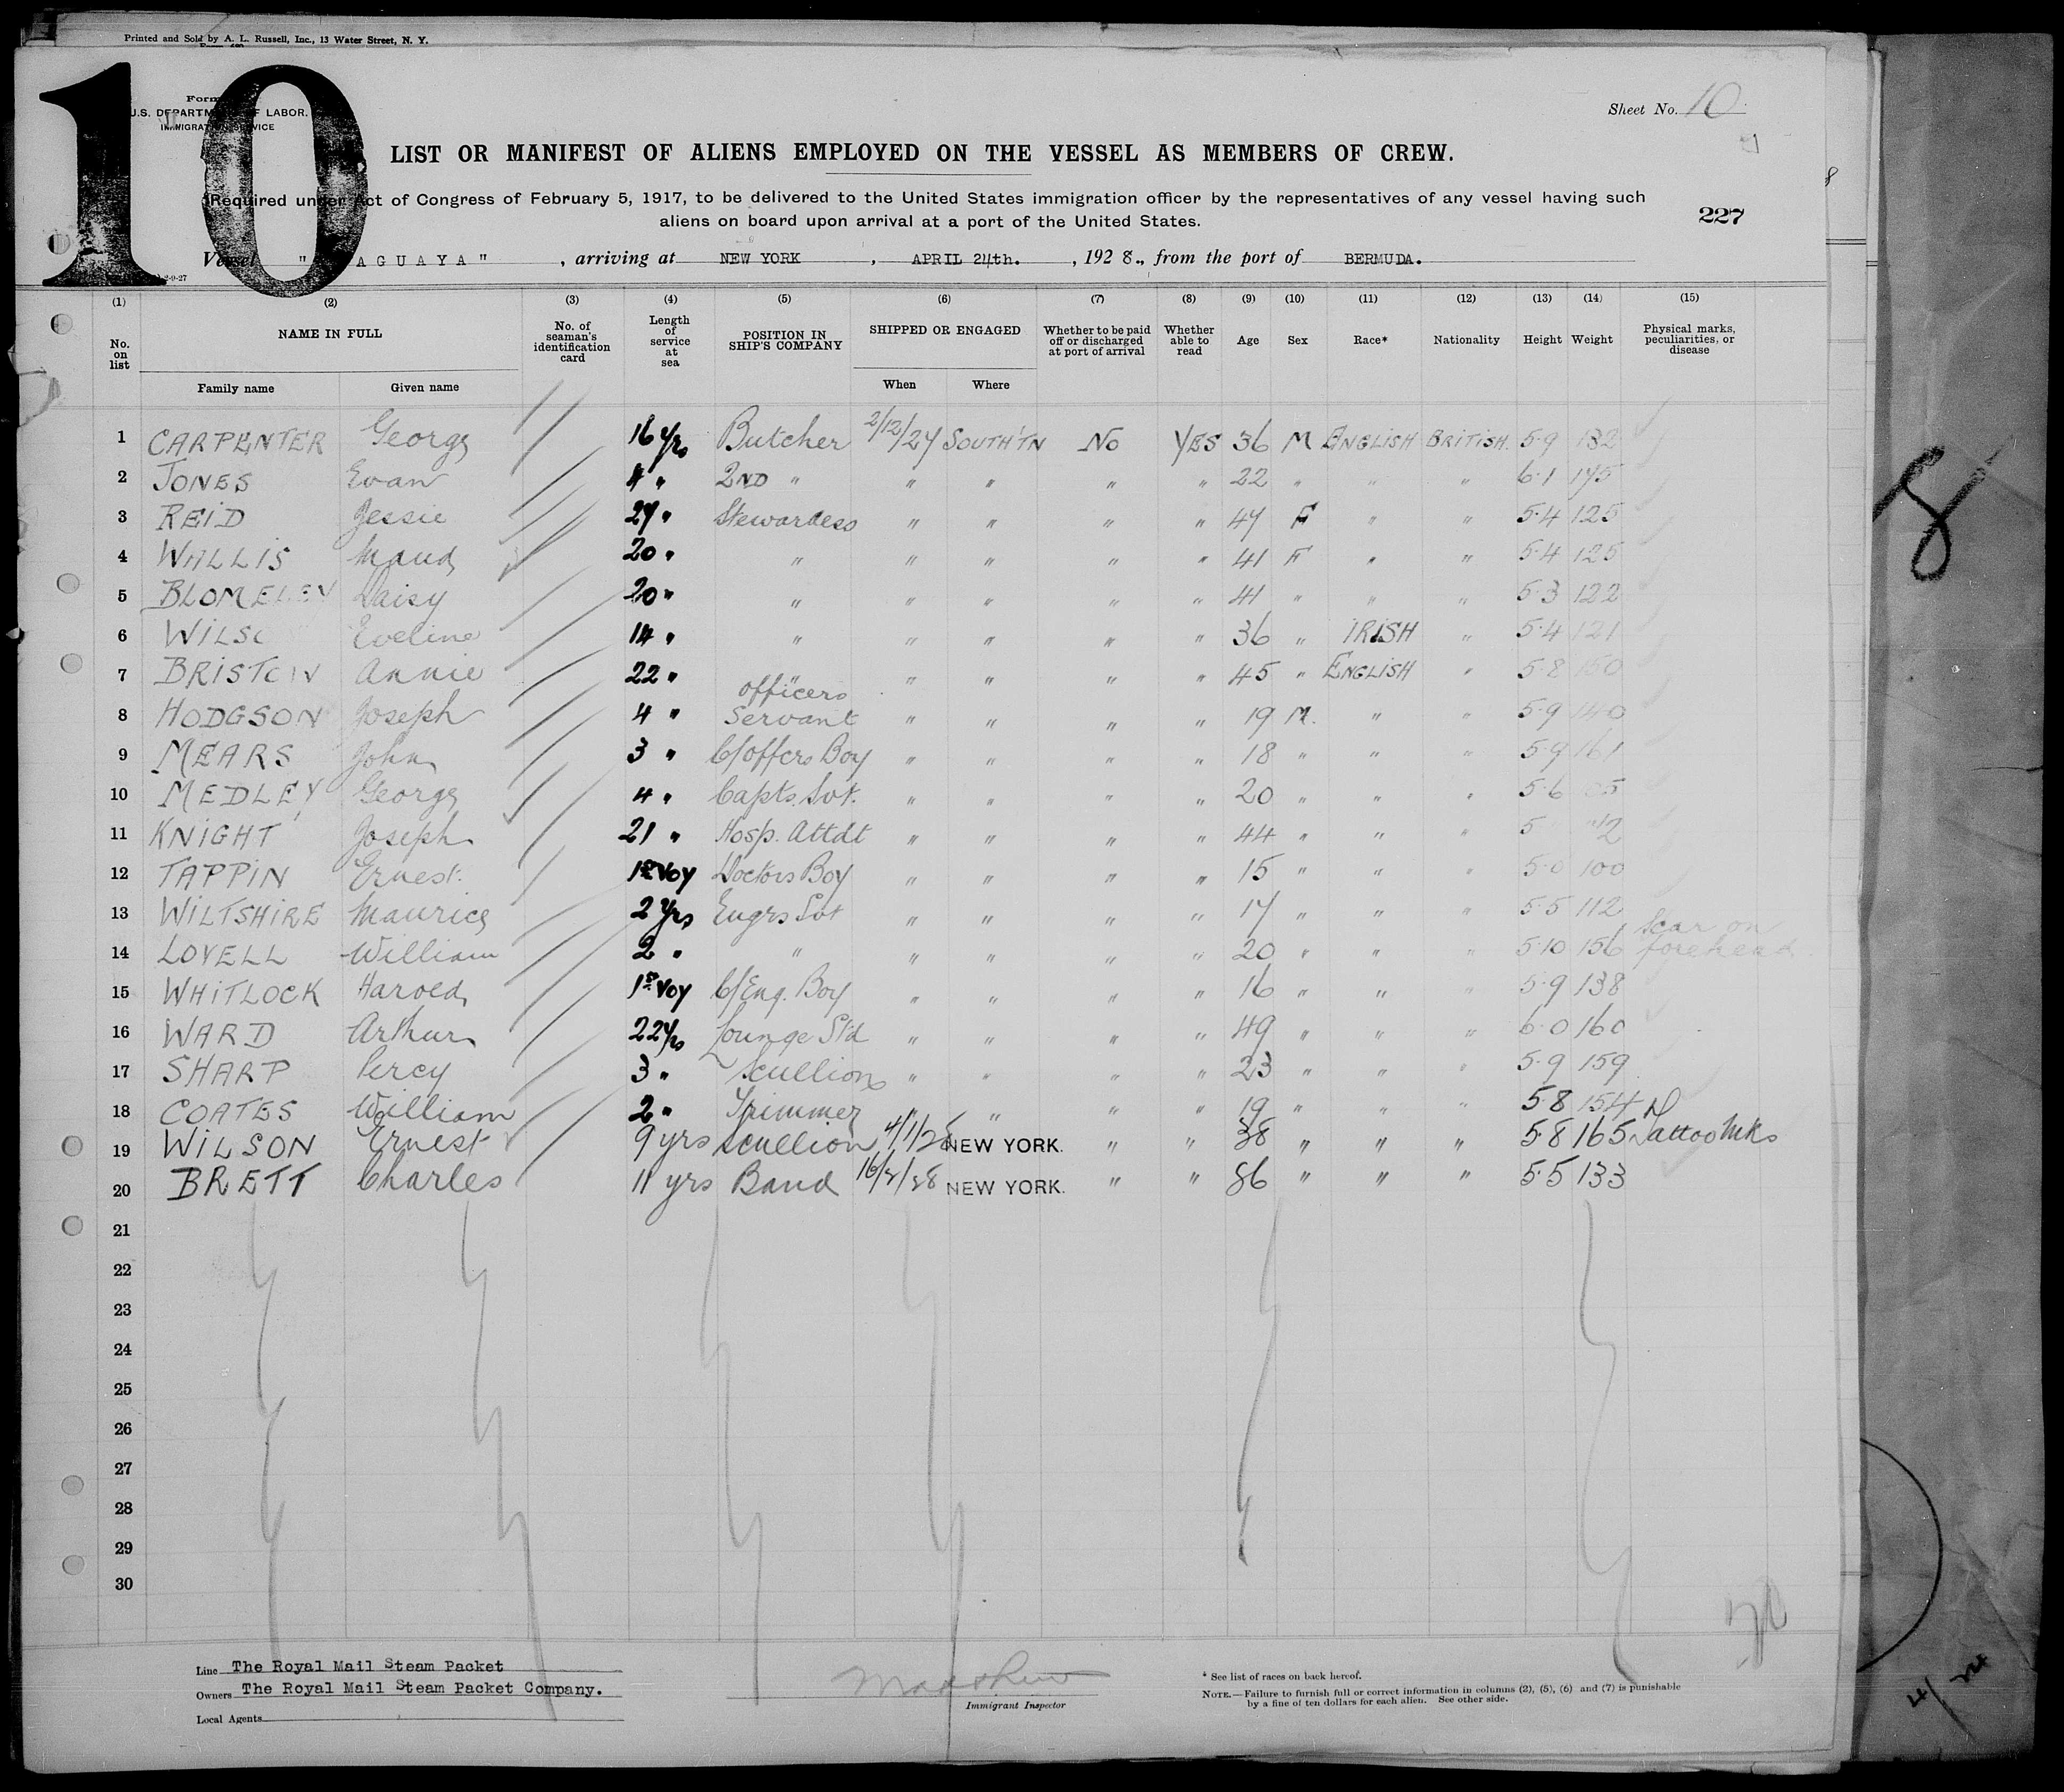 Printed and Sold by A. L. Russell, Inc., 13 Water Street, N. Y.
10
Form
U.S. DEPARTMENT OF LABOR.
IMMIGRATION SERVICE
Sheet No. 10
LIST OR MANIFEST OF ALIENS EMPLOYED ON THE VESSEL AS MEMBERS OF CREW.
Required under Act of Congress of February 5, 1917, to be delivered to the United States immigration officer by the representatives of any vessel having such
aliens on board upon arrival at a port of the United States.
227
Vessel " AGUAYA " , arriving at NEW YORK , APRIL 24th. , 1928., from the port of BERMUDA.
(1) (2) (3) (4) (5) (6) (7) (8) (9) (10) (11) (12) (13) (14) (15)
No. on list NAME IN FULL Family name Given name No. of seaman's identification card Length of service at sea POSITION IN SHIP'S COMPANY SHIPPED OR ENGAGED When Where Whether to be paid off or discharged at port of arrival Whether able to read Age Sex Race* Nationality Height Weight Physical marks, peculiarities, or disease
1 CARPENTER George 16 yrs Butcher 2/12/27 SOUTH'TN No YES 36 M ENGLISH BRITISH. 5.9 132
2 JONES Evan 4 " 2ND " " " " " 22 " " " 6.1 175
3 REID Jessie 27 " Stewardess " " " " 47 F " " 5.4 125
4 WALLIS Maud 20 " " " " " " 41 F " " 5.4 125
5 BLOMELEY Daisy 20 " " " " " " 41 " " " 5.3 122
6 Eveline 14 " " " " " " 36 " IRISH " 5.4 121
7 BRISTOW Annie 22 " " " " " " 45 " ENGLISH " 5.8 150
8 HODGSON Joseph 4 " officers Servant " " " " 19 M. " " 5.9 140
9 MEARS John 3 " C/offcrs Boy " " " " 18 " " " 5.9 161
10 MEDLEY George 4 " Capts. Svt. " " " " 20 " " " 5.6
11 KNIGHT Joseph 21 " Hosp. Attdt " " " " 44 " " " 5
12 TAPPIN Ernest. 1st Voy Doctors Boy " " " " 15 " " " 5.0 100
13 WILTSHIRE Maurice 2 yrs Engrs Svt " " " " 17 " " " 5.5 112
14 LOVELL William 2 " " " " " " 20 " " " 5.10 156 Scar on forehead
15 WHITLOCK Harold 1st Voy C/Eng. Boy " " " " 16 " " " 5.9 138
16 WARD Arthur 22 yrs Lounge Std " " " " 49 " " " 6.0 160
17 SHARP Percy 3 " Scullion " " " " 23 " " " 5.9 159
18 COATES William 2 " Trimmer " " " 19 " " " 5.8 154
19 WILSON Ernest 9 yrs Scullion 4/1/28 NEW YORK. " " 38 " " " 5.8 165 Tattoo Mks
20 BRETT Charles 11 yrs Band NEW YORK. " " " " " 5.5 133
21
22
23
24
25
26
27
28
29
30
Line The Royal Mail Steam Packet
Owners The Royal Mail Steam Packet Company.
Local Agents
Immigrant Inspector
* See list of races on back hereof.
NOTE.—Failure to furnish full or correct information in columns (2), (5), (6) and (7) is punishable
by a fine of ten dollars for each alien. See other side.
8